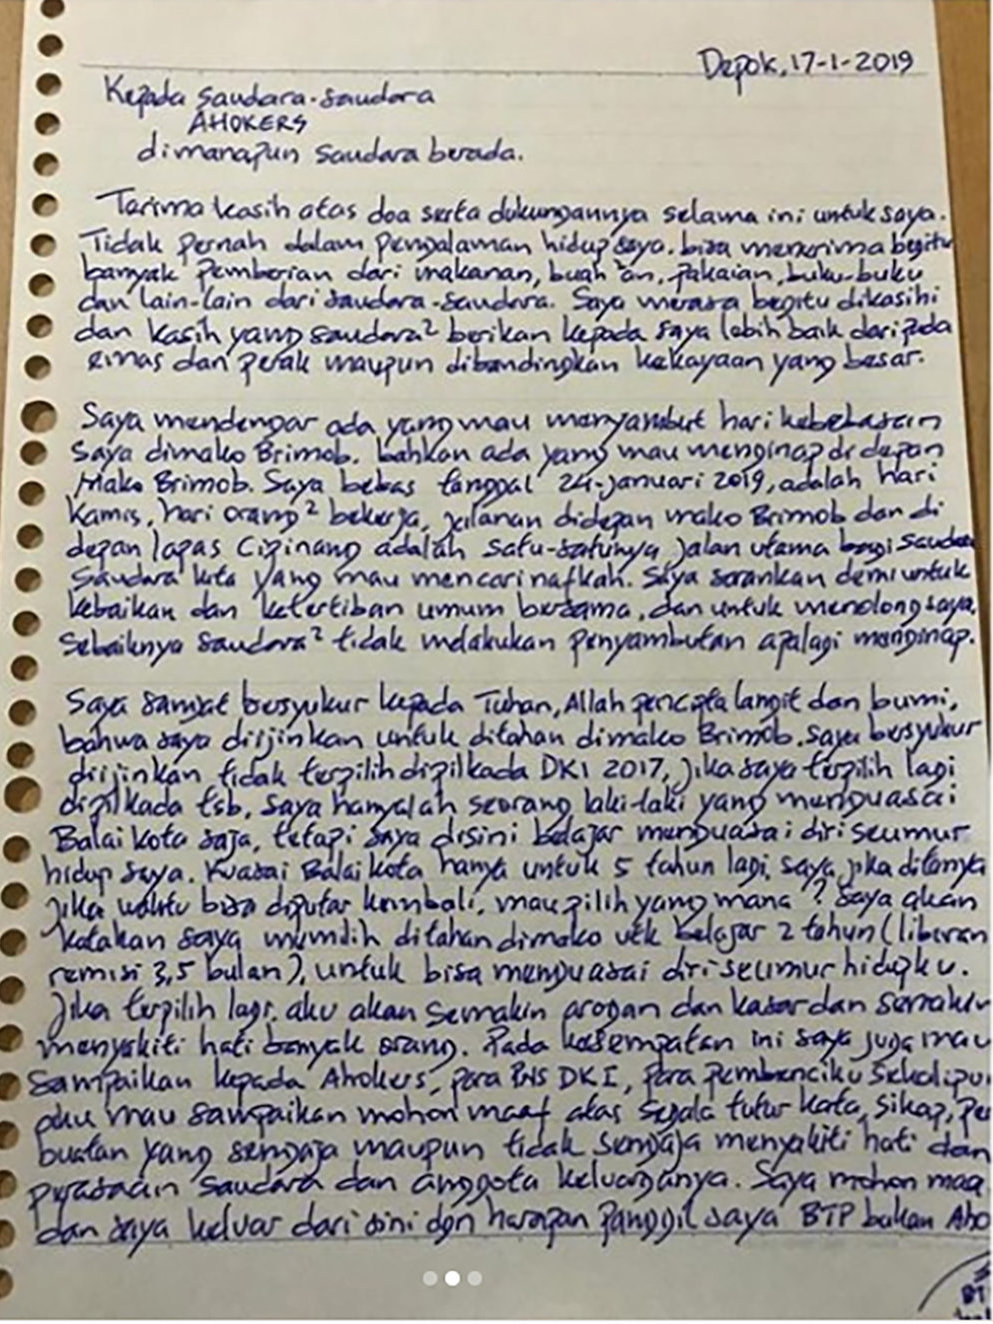 Depok, 17-1-2019
Kepada Saudara-Saudara
AHOKERS
dimanapun Saudara berada.
Terima kasih atas doa serta dukungannya selama ini untuk saya.
Tidak pernah dalam pengalaman hidup saya. bisa menerima begitu
banyak pemberian dari makanan, buah²an, pakaian, buku-buku
dan lain-lain dari saudara-saudara. Saya merasa begitu dikasihi
dan kasih yang saudara² berikan kepada saya lebih baik daripada
emas dan perak maupun dibandingkan kekayaan yang besar.
Saya mendengar ada yang mau menyambut hari kebebasan
Saya dimako Brimob, bahkan ada yang mau menginap di depan
Mako Brimob. Saya bebas tanggal 24-januari 2019, adalah hari
Kamis, hari orang² bekerja, jalanan didepan mako Brimob dan di
depan lapas Cipinang adalah satu-satunya jalan utama bagi Saudara
Saudara kita yang mau mencari nafkah. Saya sarankan demi untuk
kebaikan dan ketertiban umum bersama, dan untuk menolong saya,
Sebaiknya saudara² tidak melakukan penyambutan apalagi menginap.
Saya sangat bersyukur kepada Tuhan, Allah pencipta langit dan bumi,
bahwa saya diijinkan untuk ditahan dimako Brimob. saya bersyukur
diijinkan tidak terpilih dipilkada DKI 2017, jika saya terpilih lagi
dipilkada tsb, saya hanyalah seorang laki-laki yang menguasai
Balai kota saja, tetapi saya disini belajar menguasai diri seumur
hidup saya. Kuasai Balai kota hanya untuk 5 tahun lagi, saya jika ditanya
jika waktu bisa diputar kembali, mau pilih yang mana? Saya akan
katakan saya memilih ditahan dimako utk belajar 2 tahun (liburan
remisi 3,5 bulan), untuk bisa menguasai diri seumur hidupku.
Jika terpilih lagi, aku akan semakin arogan dan kasar dan semakin
menyakiti hati banyak orang. Pada kesempatan ini saya juga mau
Sampaikan kepada Ahokers, para PNS DKI, para pembenciku sekalipun
aku mau sampaikan mohon maaf atas segala tutur kata, sikap, per
buatan yang sengaja maupun tidak sengaja menyakiti hati dan
perasaan saudara dan anggota keluarganya. Saya mohon maa
dan saya keluar dari sini dgn harapan panggil saya BTP bukan Aho